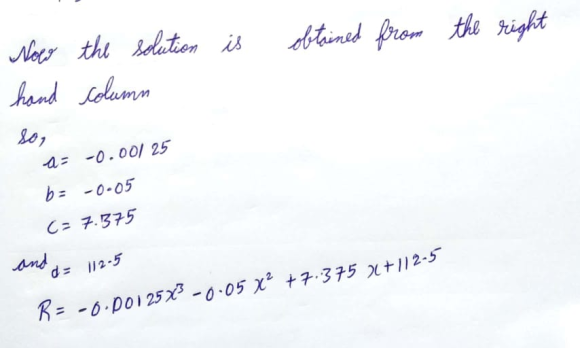 Now the solution is obtained from the right
hand column
so,
a = -0.00125
b = -0.05
c = 7.375
and d = 112.5
R = -0.00125x³ - 0.05 x² + 7.375 x + 112.5